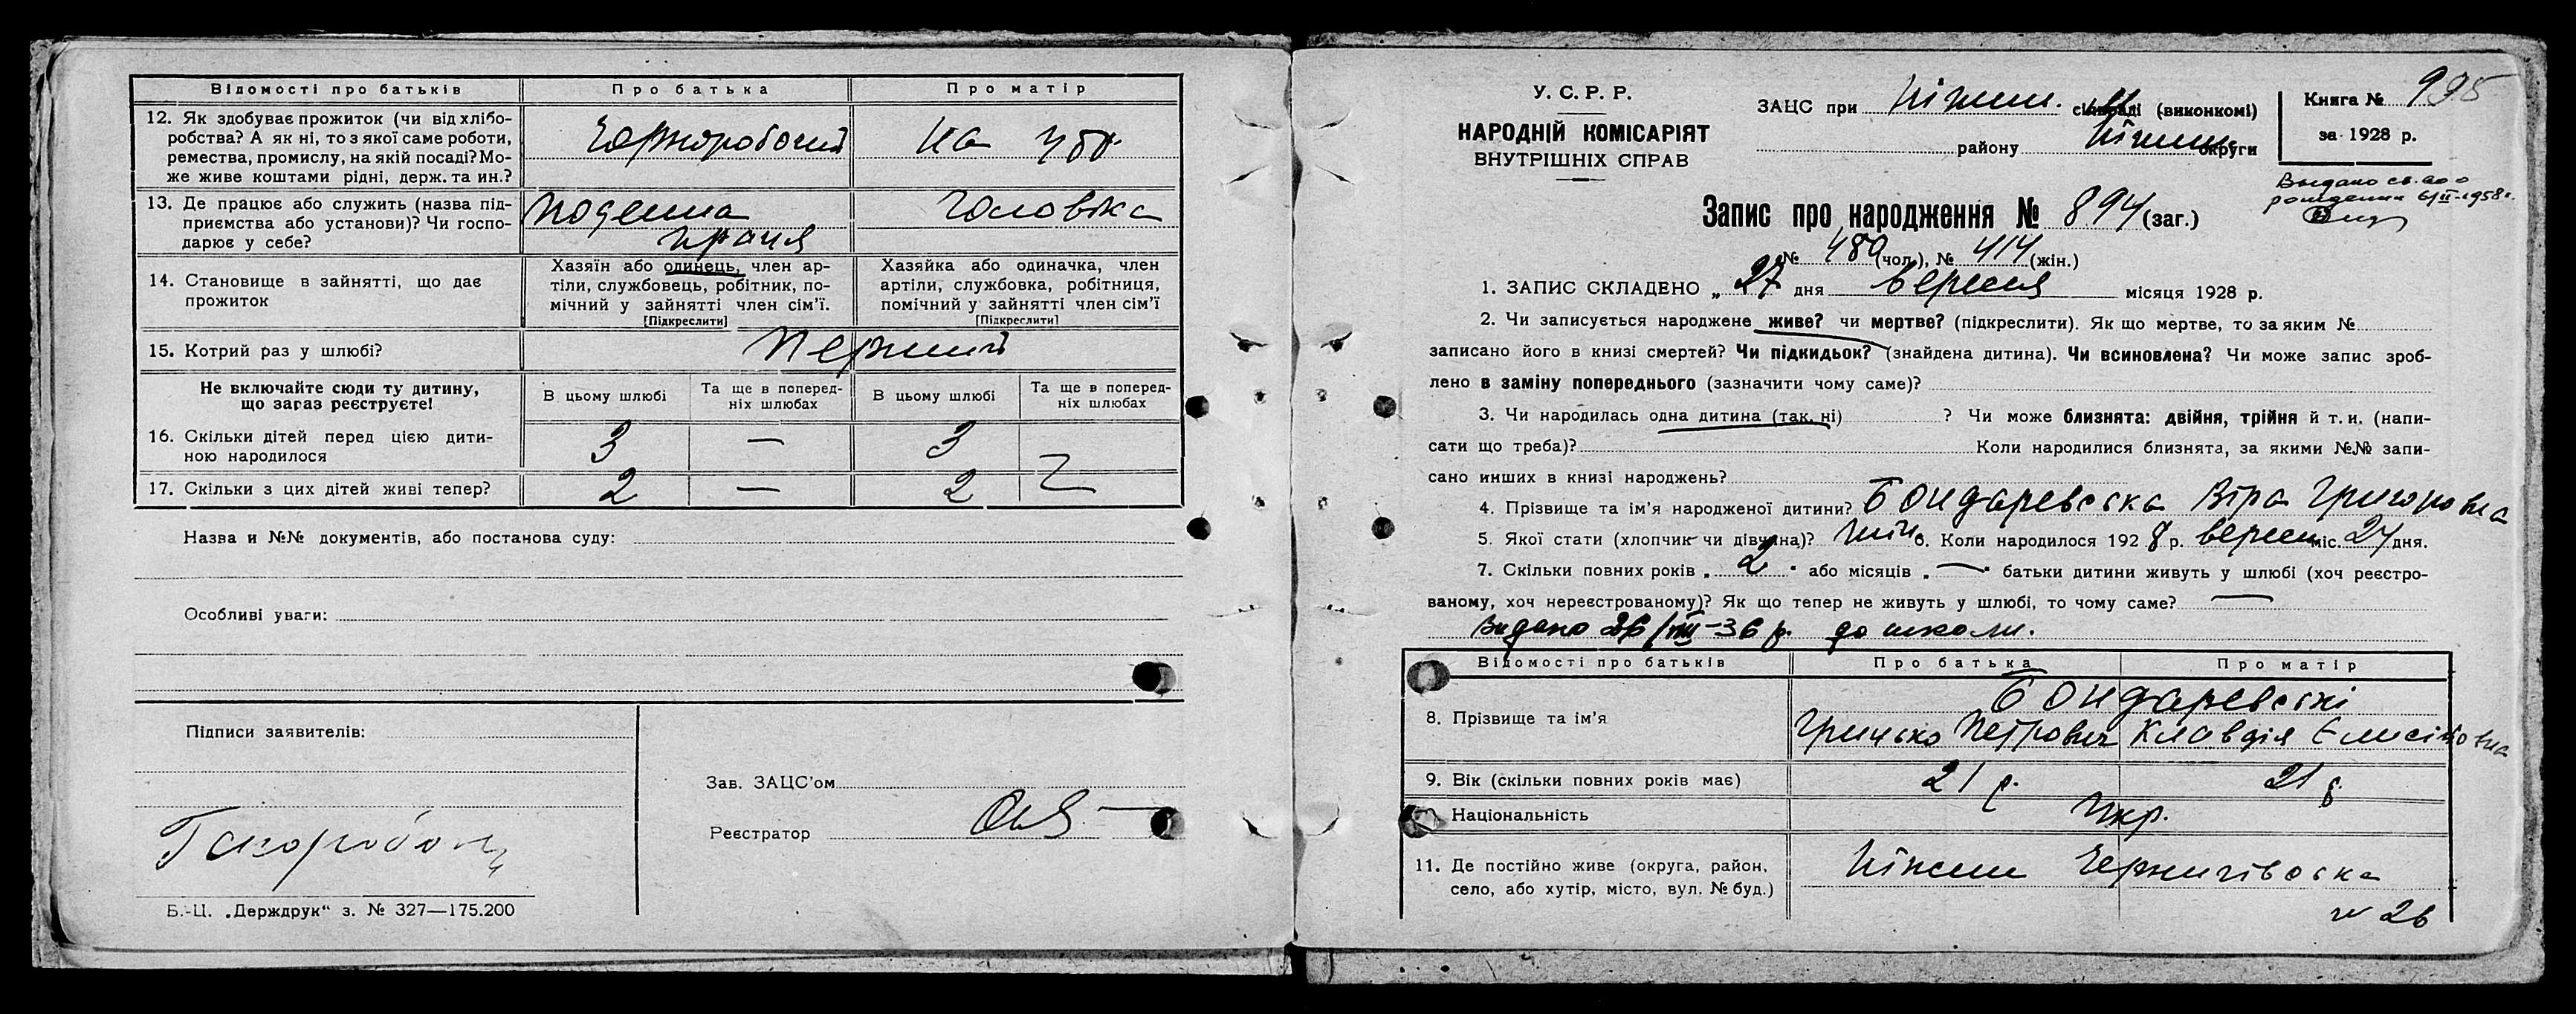 Відомості про батьків Про батька Про матір
12. Як здобуває прожиток (чи від хлібо-
робства? А як ні, то з якої саме роботи,
ремества, промислу, на якій посаді? Мо-
же живе коштами рідні, держ. та ин.?
Чорноробочий На
13. Де працює або служить (назва під-
приємства або установи)? Чи госпо-
дарює у себе?
поденна
праця
чоловіка
14. Становище в зайнятті, що дає
прожиток
Хазяїн або одинець, член ар-
тіли, службовець, робітник, по-
мічний у зайнятті член сім'ї.
[Підкреслити]
Хазяйка або одиначка, член
артіли, службовка, робітниця,
помічний у зайнятті член сім'ї
[Підкреслити]
15. Котрий раз у шлюбі? Перший
Не включайте сюди ту дитину,
що зараз реєструєте!
В цьому шлюбі
Та ще в поперед-
ніх шлюбах
В цьому шлюбі
Та ще в поперед-
ніх шлюбах
16. Скільки дітей перед цією дити-
ною народилося
3 — 3
17. Скільки з цих дітей живі тепер? 2 — 2
Назва и №№ документів, або постанова суду:
Особливі уваги:
Підписи заявителів:
Зав. ЗАЦС'ом
Реєстратор
Б.-Ц. „Держдрук" з. № 327—175.200
У. С. Р. Р.
НАРОДНІЙ КОМІСАРІЯТ
ВНУТРІШНІХ СПРАВ
ЗАЦС при Ніжин. сільраді (виконкомі)
району Ніжин округи
Книга № 995
за 1928 р.
Выдано св. во о
рождении 6/II-1958 г.
Запис про народження № 894 (заг.)
№ 480 (чол.), № 414 (жін.)
1. ЗАПИС СКЛАДЕНО „ 27 дня вересня місяця 1928 р.
2. Чи записується народжене живе? чи мертве? (підкреслити). Як що мертве, то за яким №
записано його в книзі смертей? Чи підкидьок? (знайдена дитина). Чи всиновлена? Чи може запис зроб-
лено в заміну попереднього (зазначити чому саме)?
3. Чи народилась одна дитина (так, ні) ? Чи може близнята: двійня, трійня й т. и. (напи-
сати що треба)? Коли народилися близнята, за якими №№ запи-
сано инших в книзі народжень?
4. Прізвище та ім'я народженої дитини? Бондаревська Віра Григоровна
5. Якої стати (хлопчик чи дівчина)? жін. 6. Коли народилося 1928 р. вересн міс. 24 дня.
7. Скільки повних років „ 2 " або місяців „ — " батьки дитини живуть у шлюбі (хоч реєстро-
ваному, хоч нереєстрованому)? Як що тепер не живуть у шлюбі, то чому саме? —
Видано 26/VIII-36 р. до школи.
Відомості про батьків Про батька Про матір
8. Прізвище та ім'я
Бондаревські
Грицько Петрович Клавдія
9. Вік (скільки повних років має) 21 р. 21 р.
Національність Укр.
11. Де постійно живе (округа, район,
село, або хутір, місто, вул. № буд.)
Ніжин Чернигівська
№ 26